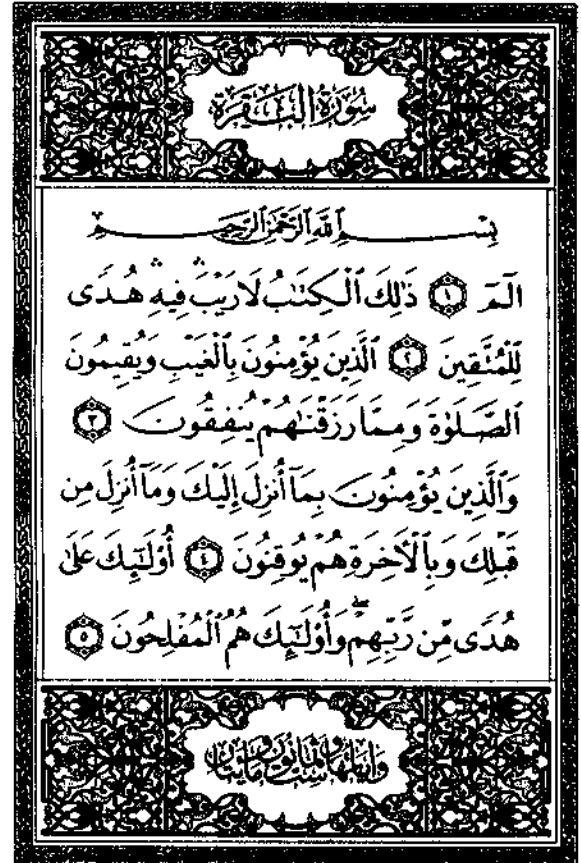 سُورَةُ البَقَرَةِ
بِسْمِ ٱللَّهِ ٱلرَّحْمَٰنِ ٱلرَّحِيمِ
الٓمٓ ١ ذَٰلِكَ ٱلْكِتَٰبُ لَا رَيْبَ ۛ فِيهِ ۛ هُدًى
لِّلْمُتَّقِينَ ٢ ٱلَّذِينَ يُؤْمِنُونَ بِٱلْغَيْبِ وَيُقِيمُونَ
ٱلصَّلَوٰةَ وَمِمَّا رَزَقْنَٰهُمْ يُنفِقُونَ ٣
وَٱلَّذِينَ يُؤْمِنُونَ بِمَآ أُنزِلَ إِلَيْكَ وَمَآ أُنزِلَ مِن
قَبْلِكَ وَبِٱلْءَاخِرَةِ هُمْ يُوقِنُونَ ٤ أُو۟لَٰٓئِكَ عَلَىٰ
هُدًى مِّن رَّبِّهِمْ ۖ وَأُو۟لَٰٓئِكَ هُمُ ٱلْمُفْلِحُونَ ٥
وَآيَاتُهَا سِتٌّ وَثَمَانُونَ وَمِائَتَانِ